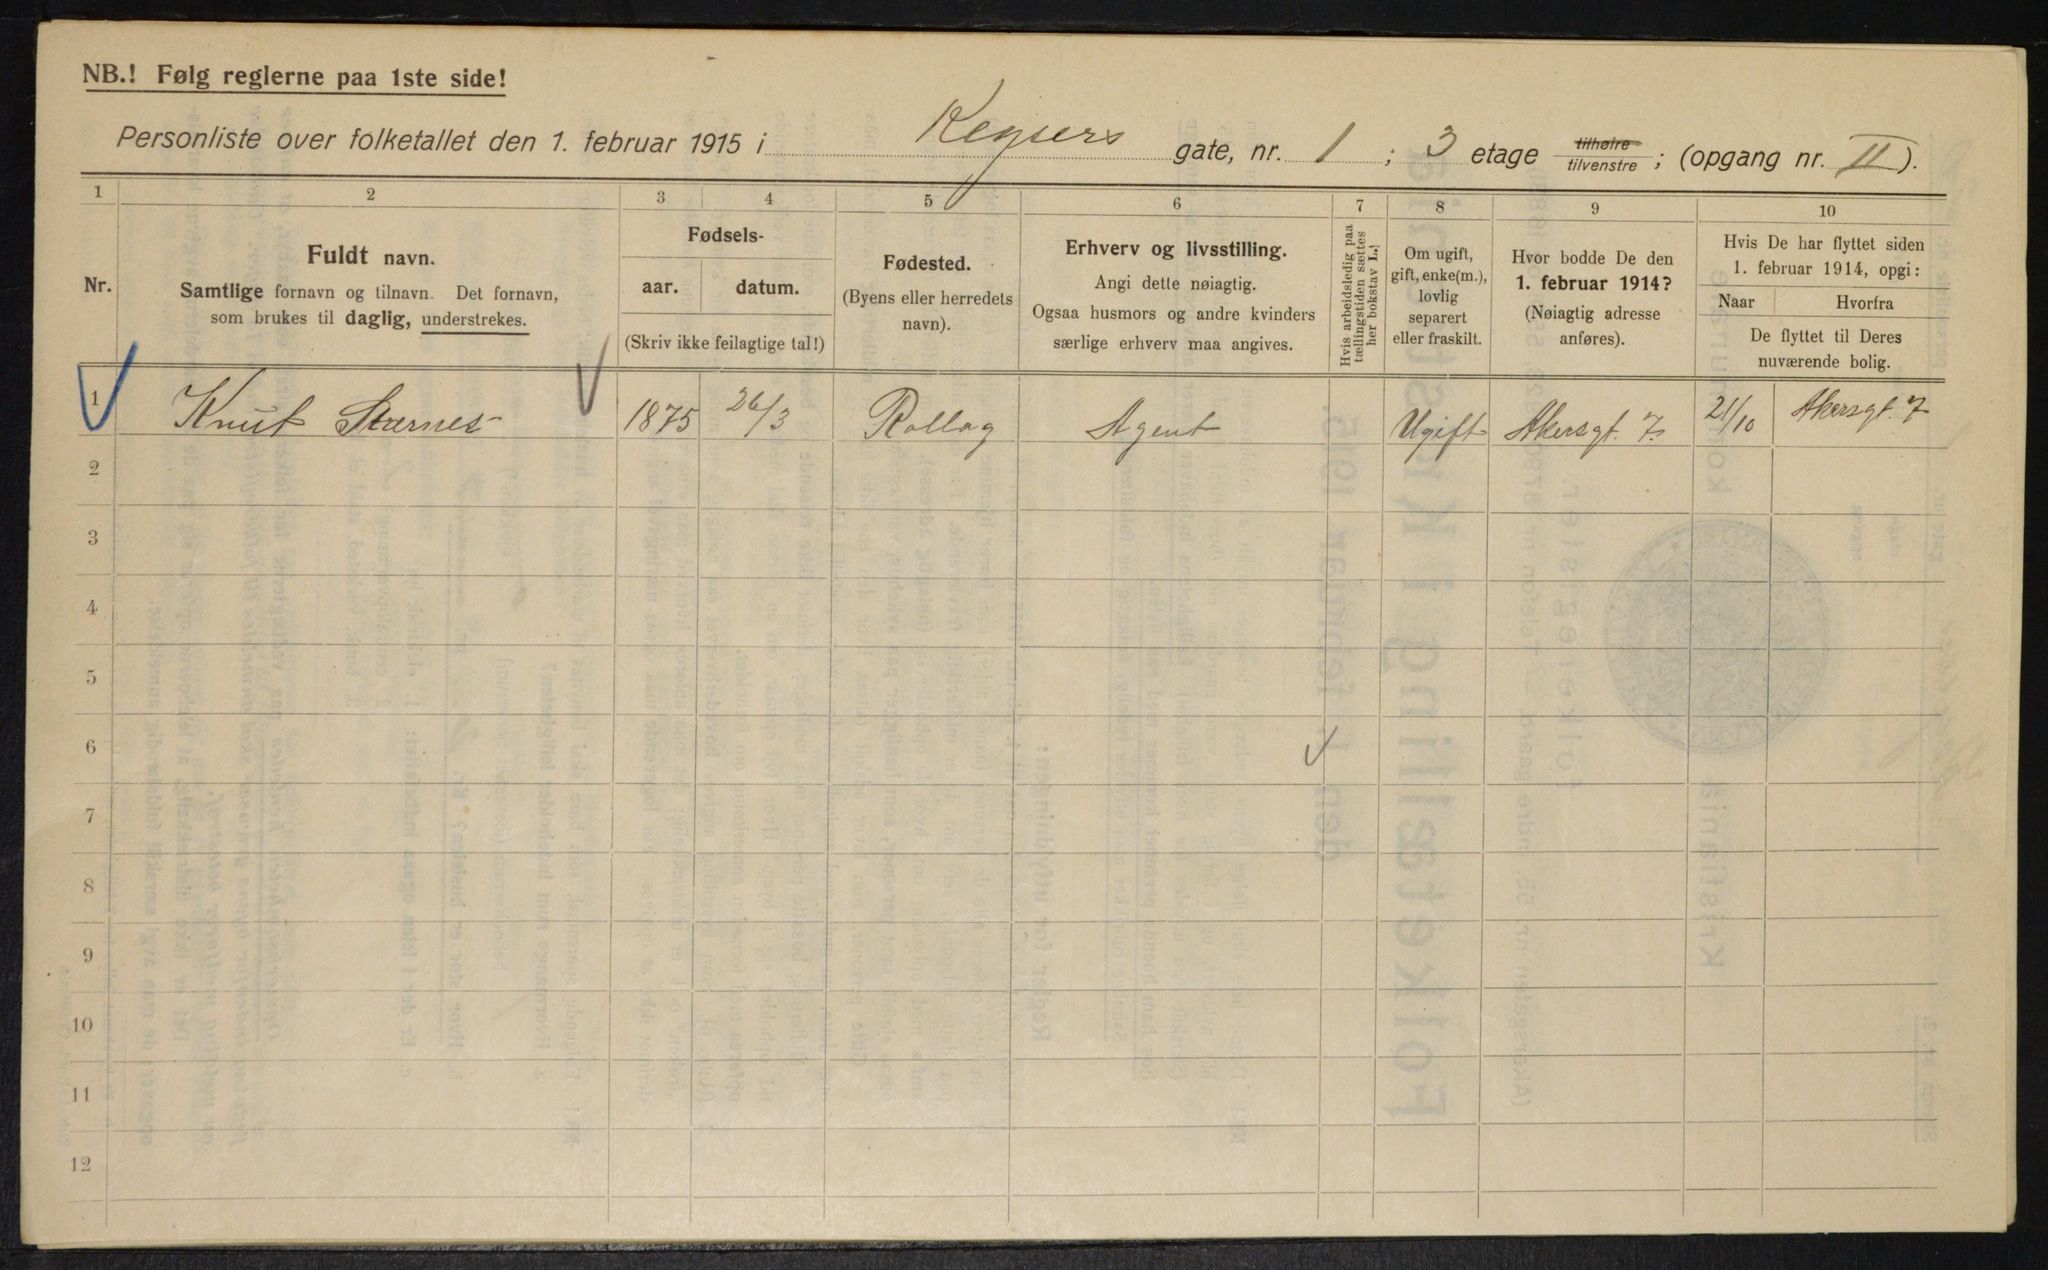 NB.! Følg reglerne paa 1ste side!
Personliste over folketallet den 1. februar 1915 i Keysers gate, nr. 1 ; 3 etage tilhøire tilvenstre ; (opgang nr. II).
1 2 3 4 5 6 7 8 9 10
Nr.
Fuldt navn.
Samtlige fornavn og tilnavn. Det fornavn,
som brukes til daglig, understrekes.
Fødsels-
aar. datum.
(Skriv ikke feilagtige tal!)
Fødested.
(Byens eller herredets
navn).
Erhverv og livsstilling.
Angi dette nøiagtig.
Ogsaa husmors og andre kvinders
særlige erhverv maa angives.
Hvis arbeidsledig paa
tællingstiden sættes
her bokstav L.!
Om ugift,
gift, enke(m.),
lovlig
separert
eller fraskilt.
Hvor bodde De den
1. februar 1914?
(Nøiagtig adresse
anføres).
Hvis De har flyttet siden
1. februar 1914, opgi:
Naar Hvorfra
De flyttet til Deres
nuværende bolig.
1 Knut Stærnes 1875 26/3 Rollag Agent Ugift Akersgt. 7. 21/10 Akersgt. 7
2
3
4
5
6
7
8
9
10
11
12